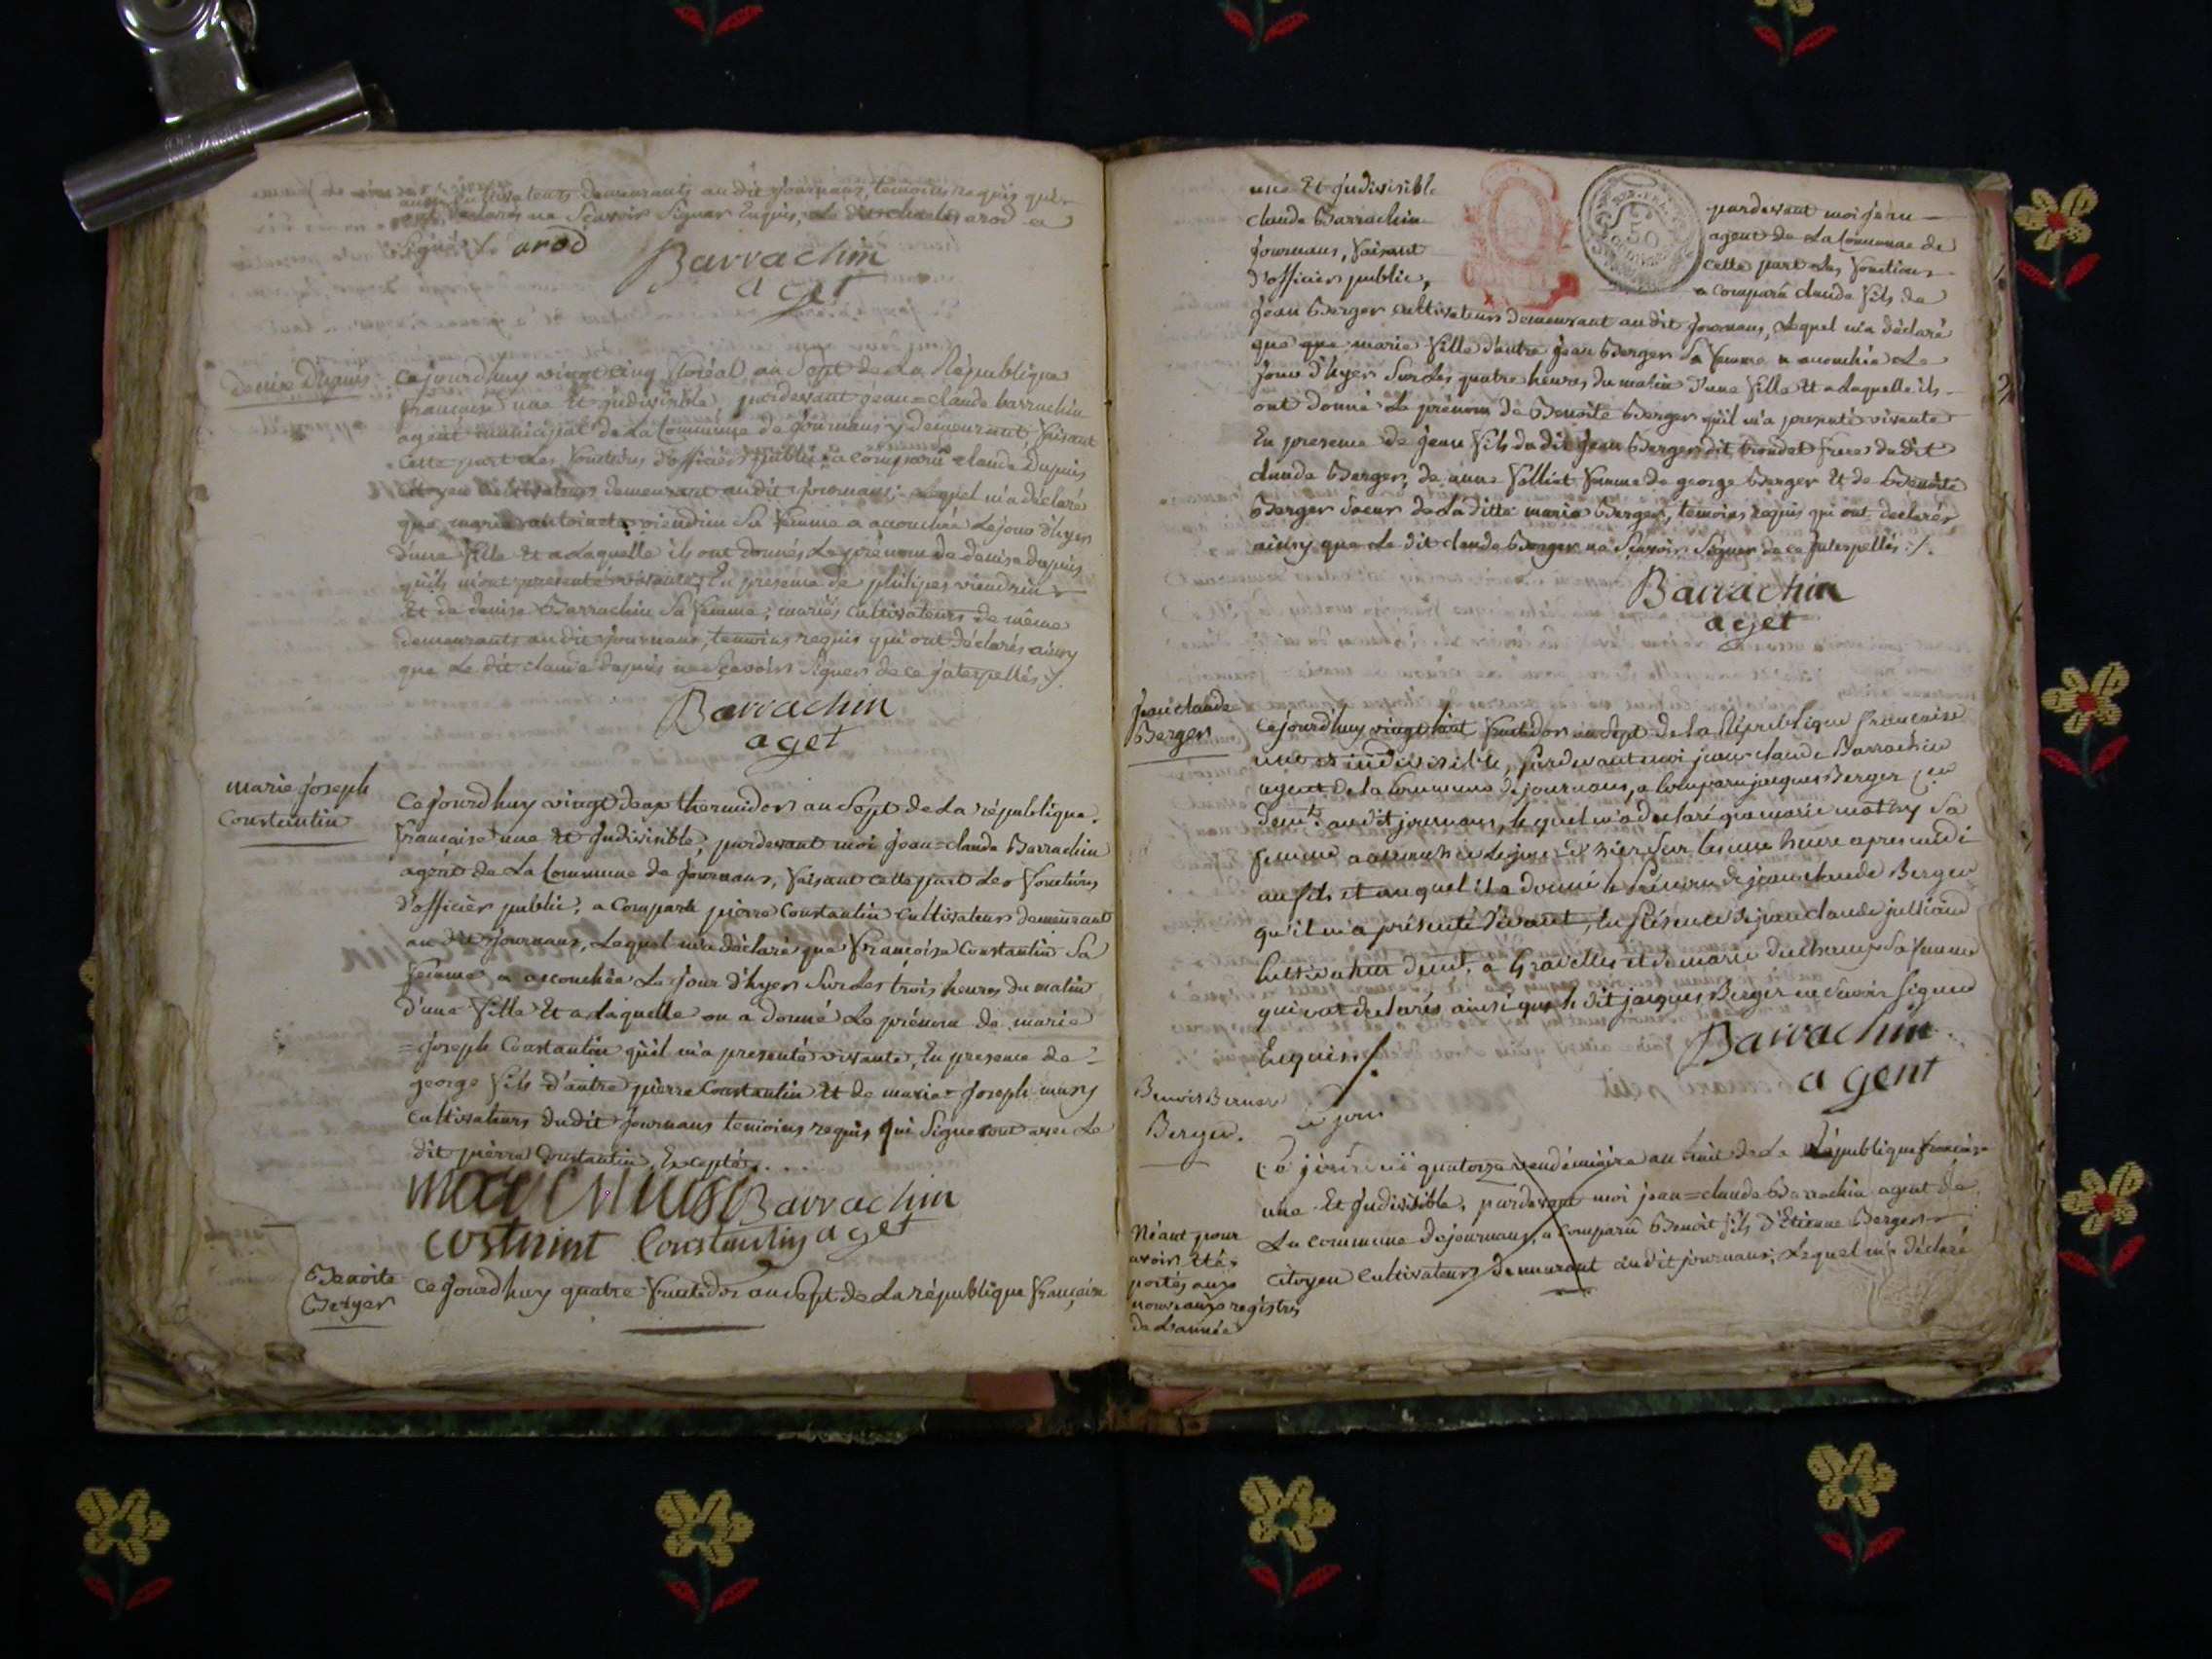 aussi cultivateurs demeurants au dit journans, temoins requis qui
ont declarés ne Scavoir Signer Enquis, Le arod a
Signé
arod
Barrachin
aget
denise Dupuis
Cejourdhuy vingt cinq floréal an Sept de La République
francaise une Et jndivisible pardevant jean=claude barrachin
agent municipal de La Commune de journans y demeurant, faisant
cette part Les fonctions d'officier public a comparu claude Dupuis
citoyen cultivateur demeurant au dit journans; Lequel m'a déclaré
que marie antoinette viendrin Sa femme a accouchée Le jour d'hyer
d'une fille Et a Laquelle ils ont donnés Le prénom de denise dupuis
qu'ils m'ont presenté vivante, En presence de philipes viendrin
Et de denise Barrachin Sa femme; mariés cultivateurs de même
demeurants au dit journans, temoins requis qui ont déclarés ainsy
que Le dit claude dupuis ne Scavoir Signer de ce jnterpellés ./.
Barrachin
aget
marie joseph
Constantin
Cejourdhuy vingt deux thermidor an Sept de La république
francaise une Et jndivisible, pardevant moi jean=claude Barrachin
agent de La Commune de journans, faisant cette part Les fonctions
d'officier public, a comparu pierre Constantin cultivateur demeurant
au dit journans, Lequel m'a déclaré que francoise Constantin Sa
femme a accouchée Le jour d'hyer Sur Les trois heures du matin
d'une fille Et a Laquelle on a donné Le prénom de marie
=joseph Constantin qu'il m'a presenté vivante, En presence de
george fils d'autre pierre Constantin Et de marie=joseph
cultivateurs du dit journans temoins requis qui Signeront avec Le
dit pierre Constantin, Excepté
Barrachin
Constantin aget
Benoite
Berger
Cejourdhuy quatre fructidor an Sept de La république francaise
une Et jndivisible pardevant moi jean
claude Barrachin agent de La Commune de
journans, faisant cette part Les fonctions
d'officier public, a comparu claude fils de
jean Berger cultivateur demeurant au dit journans, Lequel m'a déclaré
que que marie fille d'autre jean Berger Sa femme a accouchée Le
jour d'hyer Sur Les quatre heures du matin d'une fille Et a Laquelle ils
ont donné Le prénom de Benoite Berger qu'il m'a presenté vivante
En presence de jean fils du dit jean Berger dit frere du dit
claude Berger, de anne femme de george Berger Et de Benoite
Berger Soeur de La ditte marie Berger, temoins requis qui ont declarés
ainsy que Le dit claude Berger ne Scavoir Signer de ce jnterpellés ./.
Barrachin
aget
jean claude
Berger
Cejourdhuy vingt huit fructidor an Sept de la République francaise
une et indivisible, pardevant moi jean claude Barrachin
agent de la Commune de journans, a comparu jacques Berger
demt. au dit journans, lequel m'a declaré que marie mathy Sa
femme a accouchée le jour d'hier sur les une heure apres midi
un fils et auquel il a donné le Prénom de jean claude Berger
qu'il m'a présenté vivant, En Présence de jean claude
cultivateur demt. a et de marie Sa femme
qui ont declarés ainsi que le dit jacques Berger ne Savoir Signer
Enquis ./.
Barrachin
agent
Berger.
ce jour
quatorze vendémiaire an huit de La République francaise
une Et jndivisible, pardevant moi jean=claude Barrachin agent de
La commune de journans, a comparu Benoit fils d'Etienne Berger
citoyen cultivateur demeurant au dit journans; Lequel m'a déclaré
Néant pour
avoir été
portés aux
nouveaux registres
de L'année